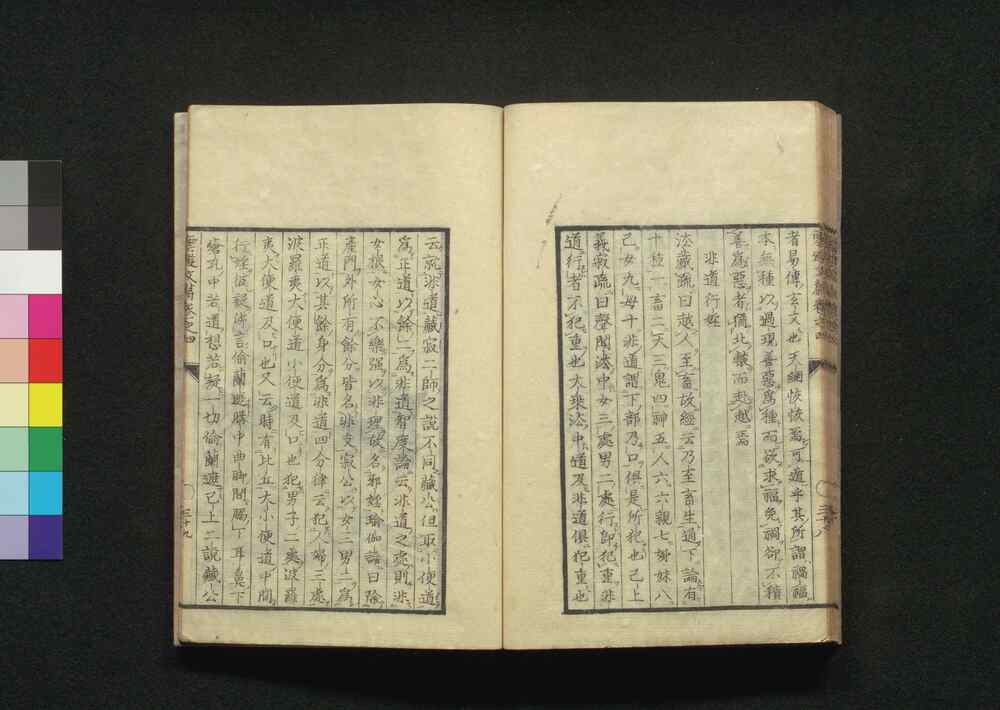 者易傳玄文也天網恢恢焉可遁乎其所謂禍福
本無種以過現善惡爲種而欲求福免禍卻不積
善爲惡者猶北轅而赴越焉
非道行婬
法藏疏曰越人至畜故經云乃至畜生通下論有
十種一畜二天三鬼四神五人六六親七姊妹八
己女九母十非道謂下部乃口俱是所犯也已上
義寂疏曰聲聞法中女三處男二處行即犯重非
道行者不犯重也大乗法中道及非道俱犯重也
三十八
云就非道藏寂二師之說不同藏公但取小便道
爲正道以餘二爲非道智度論云非道之處則非
女根女心不樂强以非理故名邪婬瑜伽論曰除
產門外所有餘分皆名非支寂公以女三男二爲
正道以其餘身分爲非道四分律云犯人婦三處
波羅夷大便道小便道及口也犯男子二處波羅
夷大便道及口也又云時有比丘大小便道中間
行婬 偷蘭遮 膊中曲脚間脇下耳鼻下
瘡孔中若道想若疑一切偷蘭遮已上二說藏公
雲㙜文集卷之四
三十九